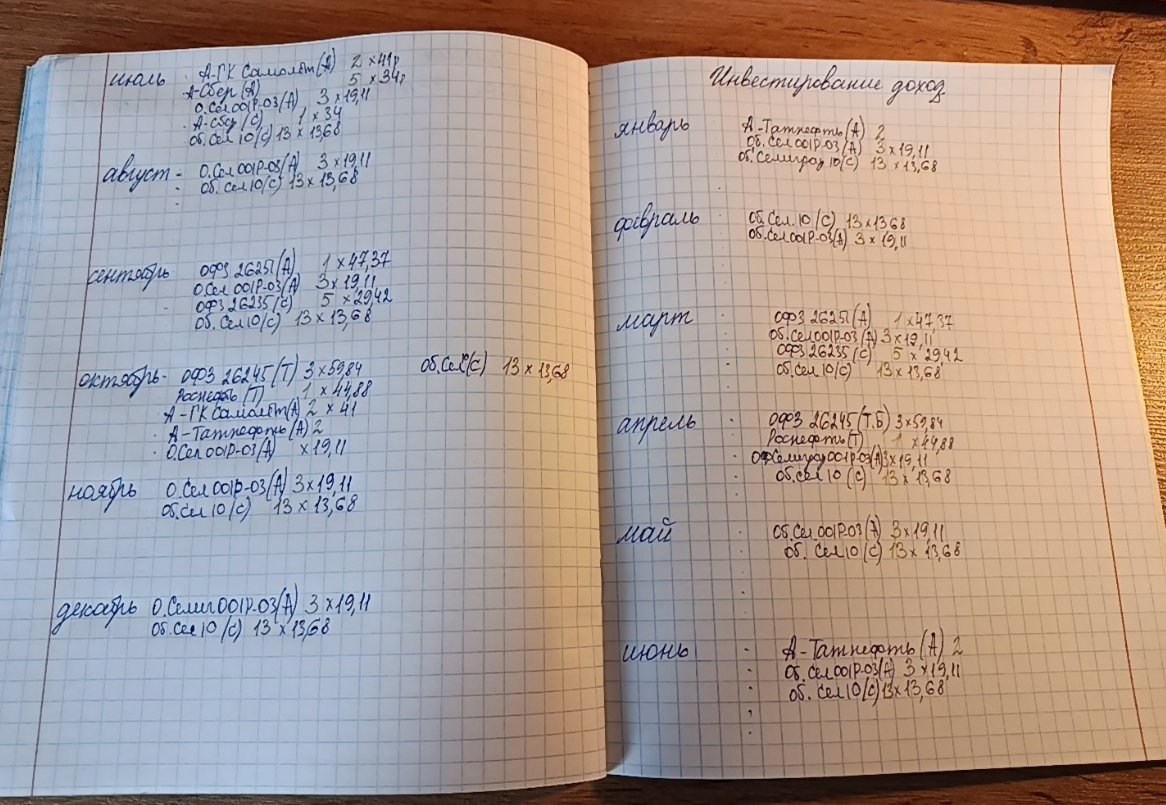 июль А-ГК Самолёт(А) 2 × 41р
А-Сбер (А) 5 × 34р
О.Сел001Р-03/(А) 3 × 19,11
А-Сбер/(С) 1 × 34
об.Сел 10/(С) 13 × 13,68
август - О.Сел001Р-03/(А) 3 × 19,11
об. Сел 10/(С) 13 × 13,68
сентябрь ОФЗ 26251(А) 1 × 47,37
О.Сел 001Р-03(А) 3 × 19,11
ОФЗ 26235/(С) 5 × 29,42
об. Сел 10/(С) 13 × 13,68
октябрь - ОФЗ 26245(Т) 3 × 59,84 об.Сел10(С) 13 × 13,68
Роснефть (Т) 1 × 44,88
А-ГК Самолёт(А) 2 × 41
А-Татнефть(А) 2
О.Сел 001Р-03/(А) × 19,11
ноябрь О.Сел 001Р-03/(А) 3 × 19,11
об.Сел 10/(С) 13 × 13,68
декабрь О.Селиг001Р-03/(А) 3 × 19,11
об.Сел 10/(С) 13 × 13,68
Инвестирование доход
январь А-Татнефть(А) 2
об.Сел 001Р-03/(А) 3 × 19,11
об.Селигдар 10/(С) 13 × 13,68
февраль об.Сел.10/(С) 13 × 13,68
об.Сел001Р-03/(А) 3 × 19,11
март ОФЗ 26251(А) 1 × 47,37
об.Сел001Р-03/(А) 3 × 19,11
ОФЗ 26235/(С) 5 × 29,42
об.Сел 10/(С) 13 × 13,68
апрель ОФЗ 26245(Т.Б) 3 × 59,84
Роснефть(Т) 1 × 44,88
Селигдар001Р-03/(А) 3 × 19,11
об.Сел 10 (С) 13 × 13,68
май об.Сел 001Р-03/(А) 3 × 19,11
об. Сел 10/(С) 13 × 13,68
июнь А-Татнефть(А) 2
об.Сел 001Р-03/(А) 3 × 19,11
об. Сел 10/(С) 13 × 13,68